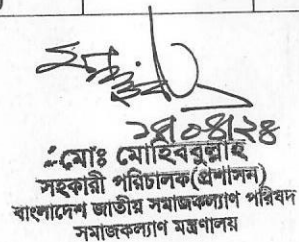 ১৪/০৪/২৪
মোঃ মোহিববুল্লাহ
সহকারী পরিচালক(প্রশাসন)
বাংলাদেশ জাতীয় সমাজকল্যাণ পরিষদ
সমাজকল্যাণ মন্ত্রণালয়